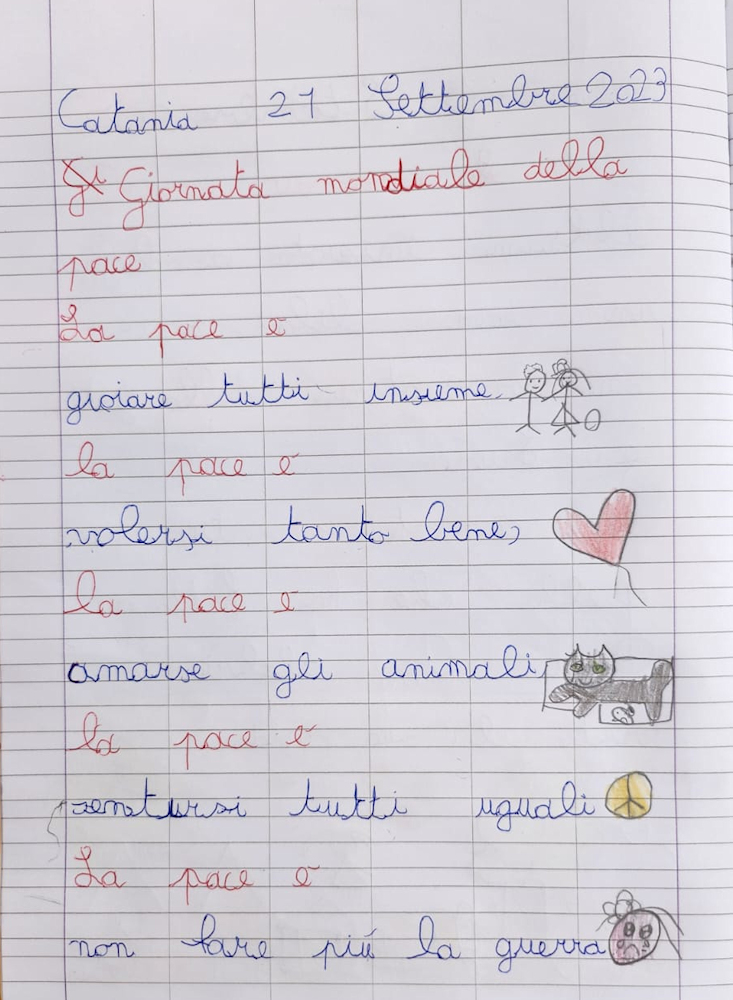 Catania 21 Settembre 2023
Giornata mondiale della
pace
La pace è
gioiare tutti insieme
la pace è
volersi tanto bene,
la pace è
amarse gli animali,
la pace è
sentirsi tutti uguali
La pace è
non fare più la guerra